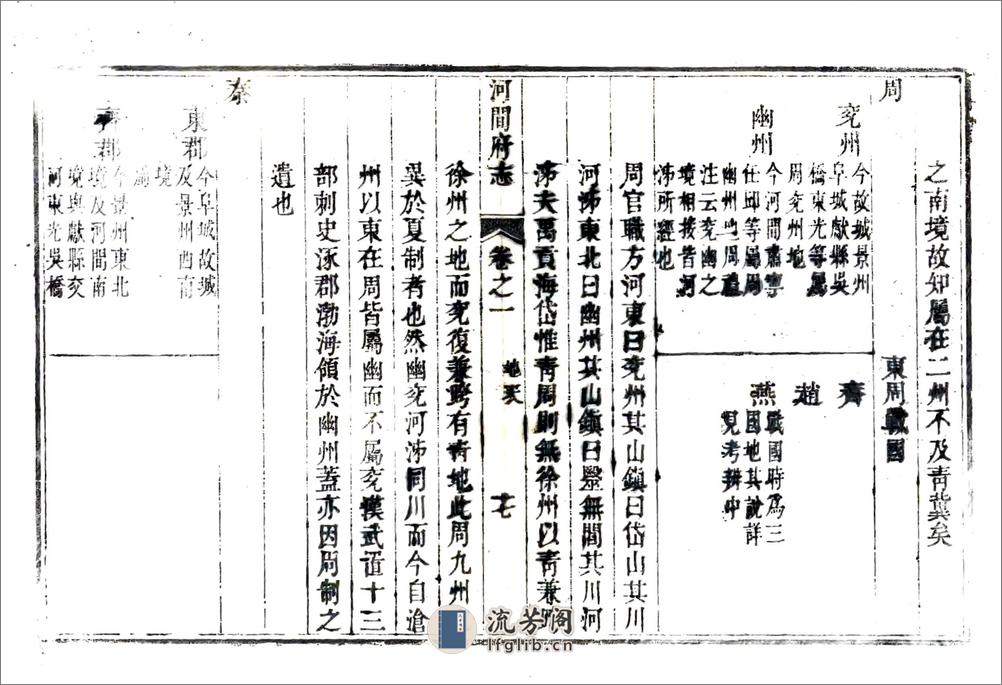 之南境故知屬在二州不及青冀矣
周
東周戰國
兗州
今故城景州
阜城獻縣吳
橋東光等屬
周兗州地
齊
趙
幽州
今河間肅寧
任邱等屬周
幽州地周禮
注云兗幽之
境相接皆河
泲所經也
燕
戰國時爲三
國地其說詳
見考辨中
周官職方河東曰兗州其山鎮曰岱山其川
河泲東北曰幽州其山鎮曰醫無閭其川河
泲夫禹貢海岱惟青周則無徐州以青兼
徐州之地而兗復兼跨有青地此周九州
異於夏制者也然幽兗河泲同川而今自滄
州以東在周皆屬幽而不屬兗漢武置十三
部刺史涿郡渤海領於幽州蓋亦因周制之
遺也
河間府志
卷之一
地表
十七
秦
東郡
今阜城故城
及景州西南
境
齊郡
今景州東北
境及河間南
境與獻縣交
河東光吳橋
流芳閣
lfglib.cn